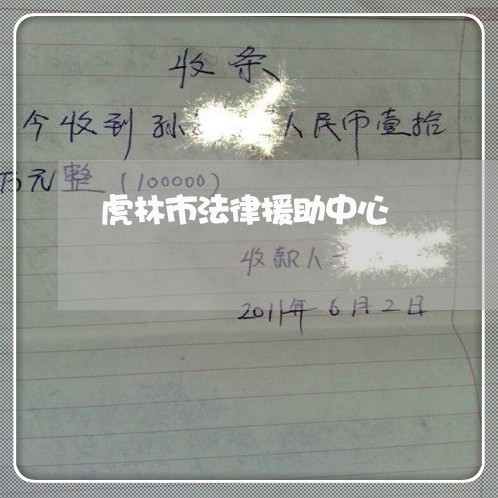 收条
今收到孙 人民币壹拾
万元整（100000）
虎林市法律援助中心
收款人
2011年6月2日